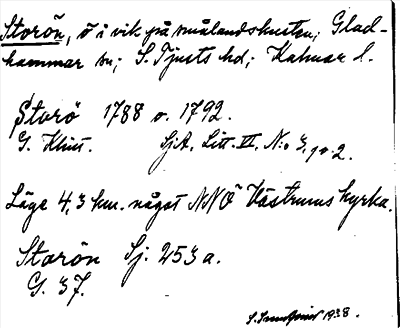 Storön, ö i vik på smålandskusten; Glad-
hammar sn; S. Tjusts hd; Kalmar l.
Storö 1788 o. 1792.
G. Klint. SjA, Litt. VI, N:o 3,
Läge 4,3 km. något NNÖ Västrums kyrka.
Storön Sj. 253 a.
G. 37.
1938.